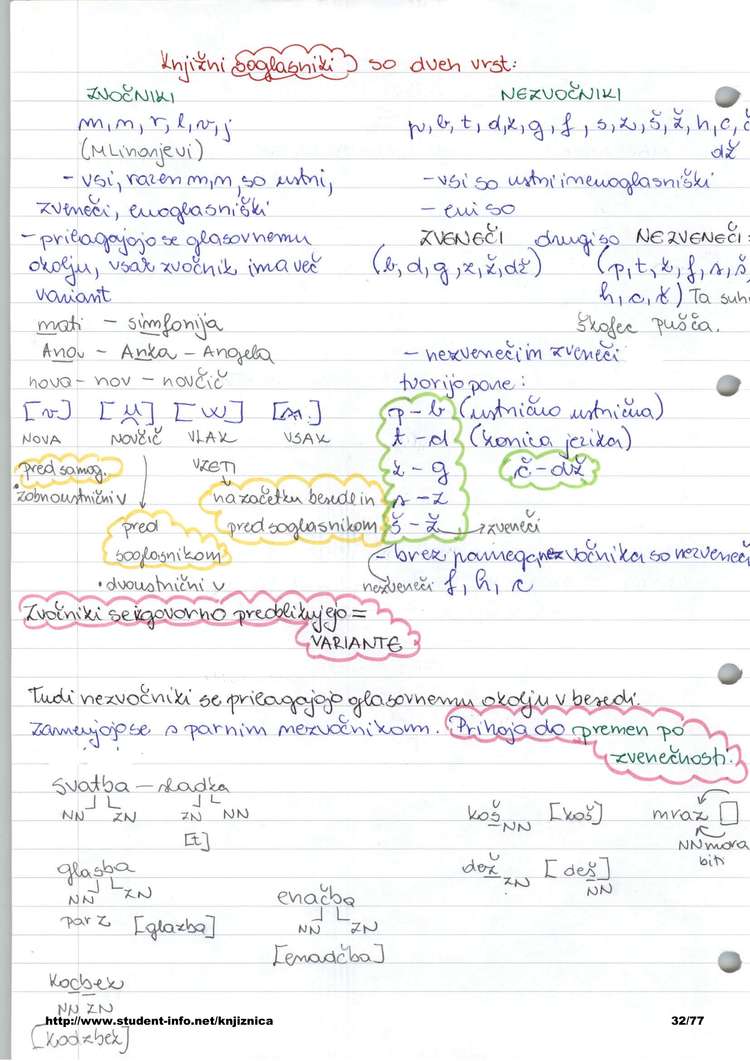 Knjižni soglasniki so dveh vrst:
ZVOČNIKI
m, n, r, l, v, j
(MLinarjevi)
- vsi, razen m, n, so ustni,
zveneči, enoglasniški
- prilagajajo se glasovnemu
okolju, vsak zvočnik ima več
variant
mati - simfonija
Ana - Anka - Angela
nova - nov - novčič
[v] [u̯] [w] [ʍ]
NOVA NOVČIČ VLAK VSAK
pred samog. VZETI
zobnoustnični v
na začetku besed in
pred soglasnikom
pred
sooglasnikom
• dvoustnični v
NEZVOČNIKI
p, b, t, d, k, g, f, s, z, š, ž, h, c, č
dž
- vsi so ustni in enoglasniški
- eni so
ZVENEČI drugi so NEZVENEČI:
(b, d, g, z, ž, dž) (p, t, k, f, s, š,
h, c, č) Ta suhi
škofec pušča.
- nezveneči in zveneči
tvorijo pare:
p - b (ustnično ustnična)
t - d (konica jezika)
k - g č - dž
s - z
š - ž zveneči
- brez parnega nezvočnika so nezveneči
nezveneči f, h, c
Zvočniki se izgovorno preoblikujejo =
VARIANTE
Tudi nezvočniki se prilagajajo glasovnemu okolju v besedi.
Zamenjajo se s parnim nezvočnikom. Prihaja do premen po
zvenečnosti.
svatba - sladka
NN ZN ZN NN
[t]
koš [koš]
NN
mraz
NN mora
biti
glasba
NN ZN
par z [glazba]
dež [deš]
ZN NN
enačba
NN ZN
[enadčba]
Kocbek
NN ZN
[kodzbek]
http://www.student-info.net/knjiznica
32/77